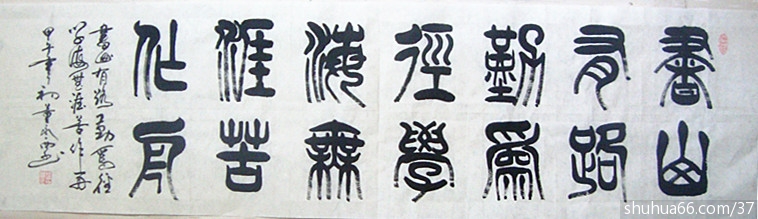 書山
有路
勤爲
徑學
海無
涯苦
作舟
書山有路勤為徑
学海無涯苦作舟
甲午年初
shuhua66.com/37